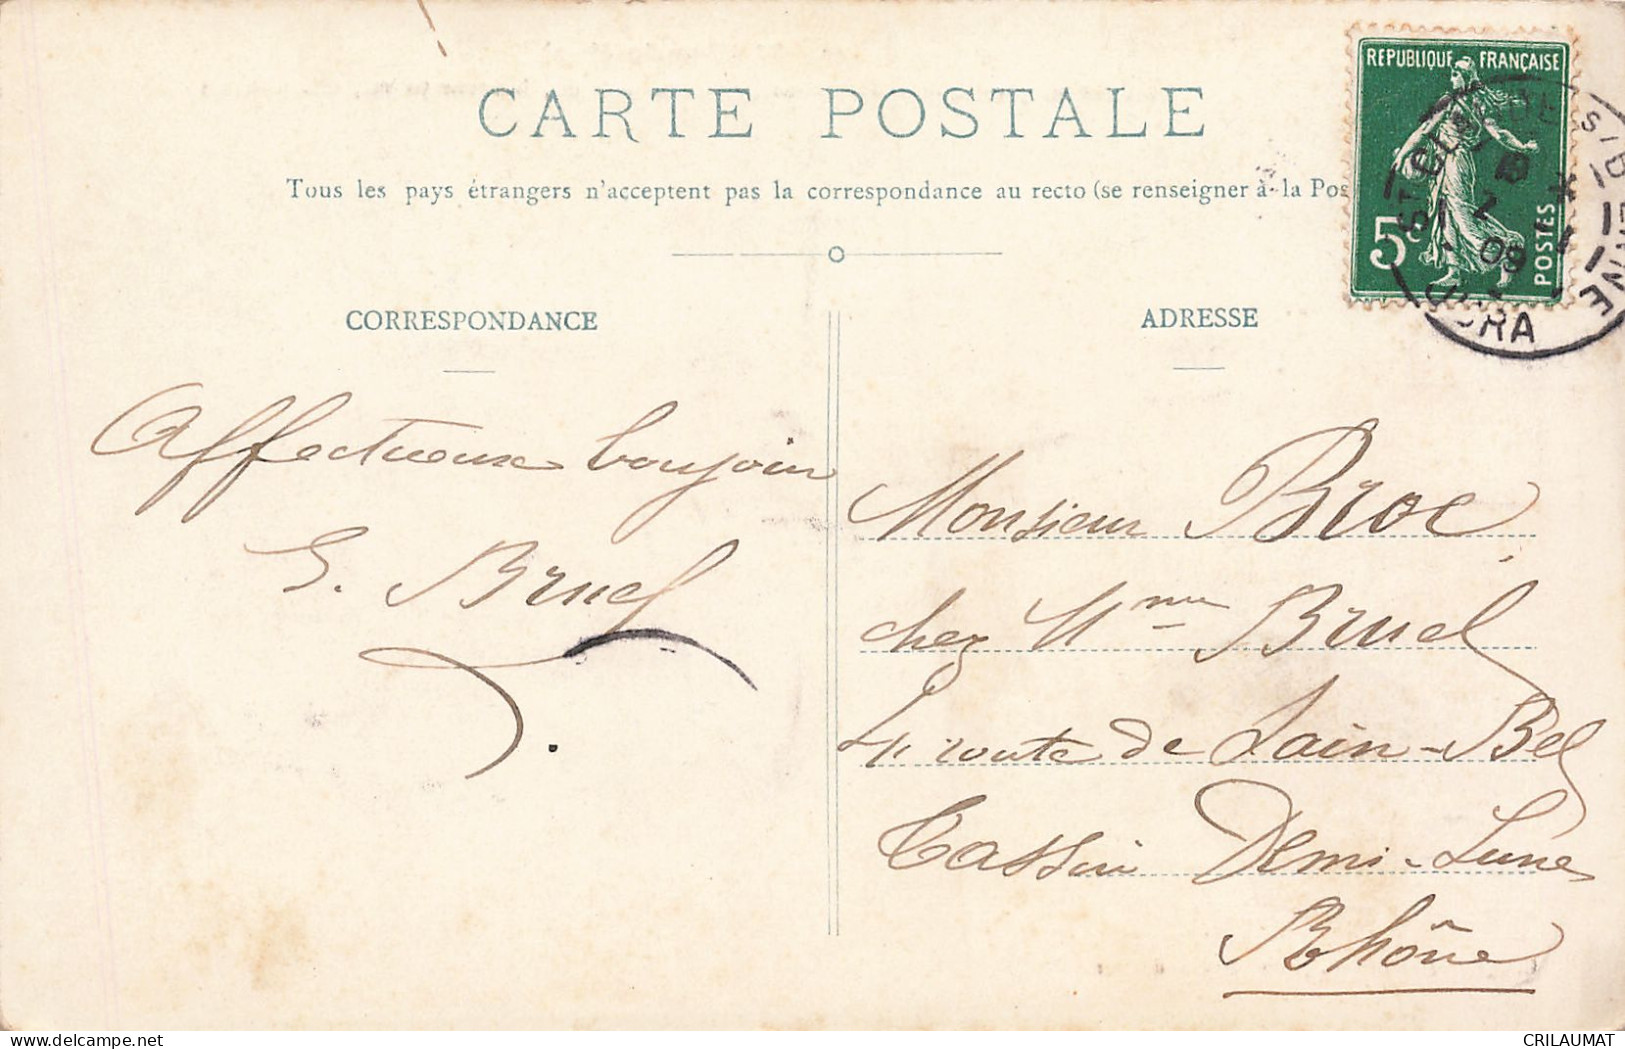 CARTE POSTALE
Tous les pays étrangers n'acceptent pas la correspondance au recto (se renseigner à la Pos
REPUBLIQUE FRANÇAISE
5c
POSTES
ST CLAUDE S/BIENNE
19
2
09
JURA
CORRESPONDANCE
ADRESSE
Affectueux bonjour
Bruel
Monsieur Broc
chez Mme Bruel
4 route de Sain-Bel
Tassin Demi-Lune
Rhône
delcampe.net
CRILAUMAT